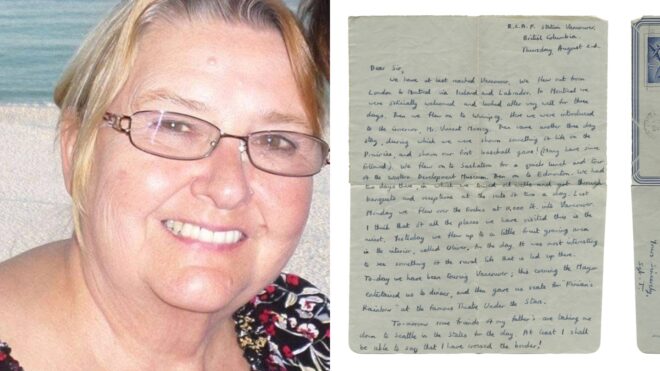 R.C.A.F. Station Vancouver,
British Columbia.
Thursday August 2nd.
Dear Sir,
We have at last reached Vancouver. We flew out from
London to Montreal via Iceland and Labrador. In Montreal we
were officially welcomed and looked after very well for three
days. Then we flew on to Winnipeg. Here we were introduced
to the Governor, Mr. Vincent Massey. Then came another three day
stay, during which we were shown something of life on the
Prairies, and shown our first baseball game! (Many have since
followed). We flew on to Saskatoon for a quick lunch and tour
of the Western Development Museum, then on to Edmonton. We had
two days there, in which we visited oil wells and got through
banquets and receptions at the rate of two a day. Last
Monday we flew over the Rockies at 10,000 ft. into Vancouver.
I think that of all the places we have visited this is the
nicest. Yesterday we flew up to a little fruit growing area
in the interior, called Oliver, for the day. It was most interesting
to see something of the rural life that is led up there.
To-day we have been touring Vancouver; this evening the Mayor
entertained us to dinner, and then gave us seats for "Finian's
Rainbow" at the famous Theatre Under the Stars.
To-morrow some friends of my father's are taking me
down to Seattle in the States for the day. At least I shall
be able to say that I have crossed the border!
Yours sincerely,